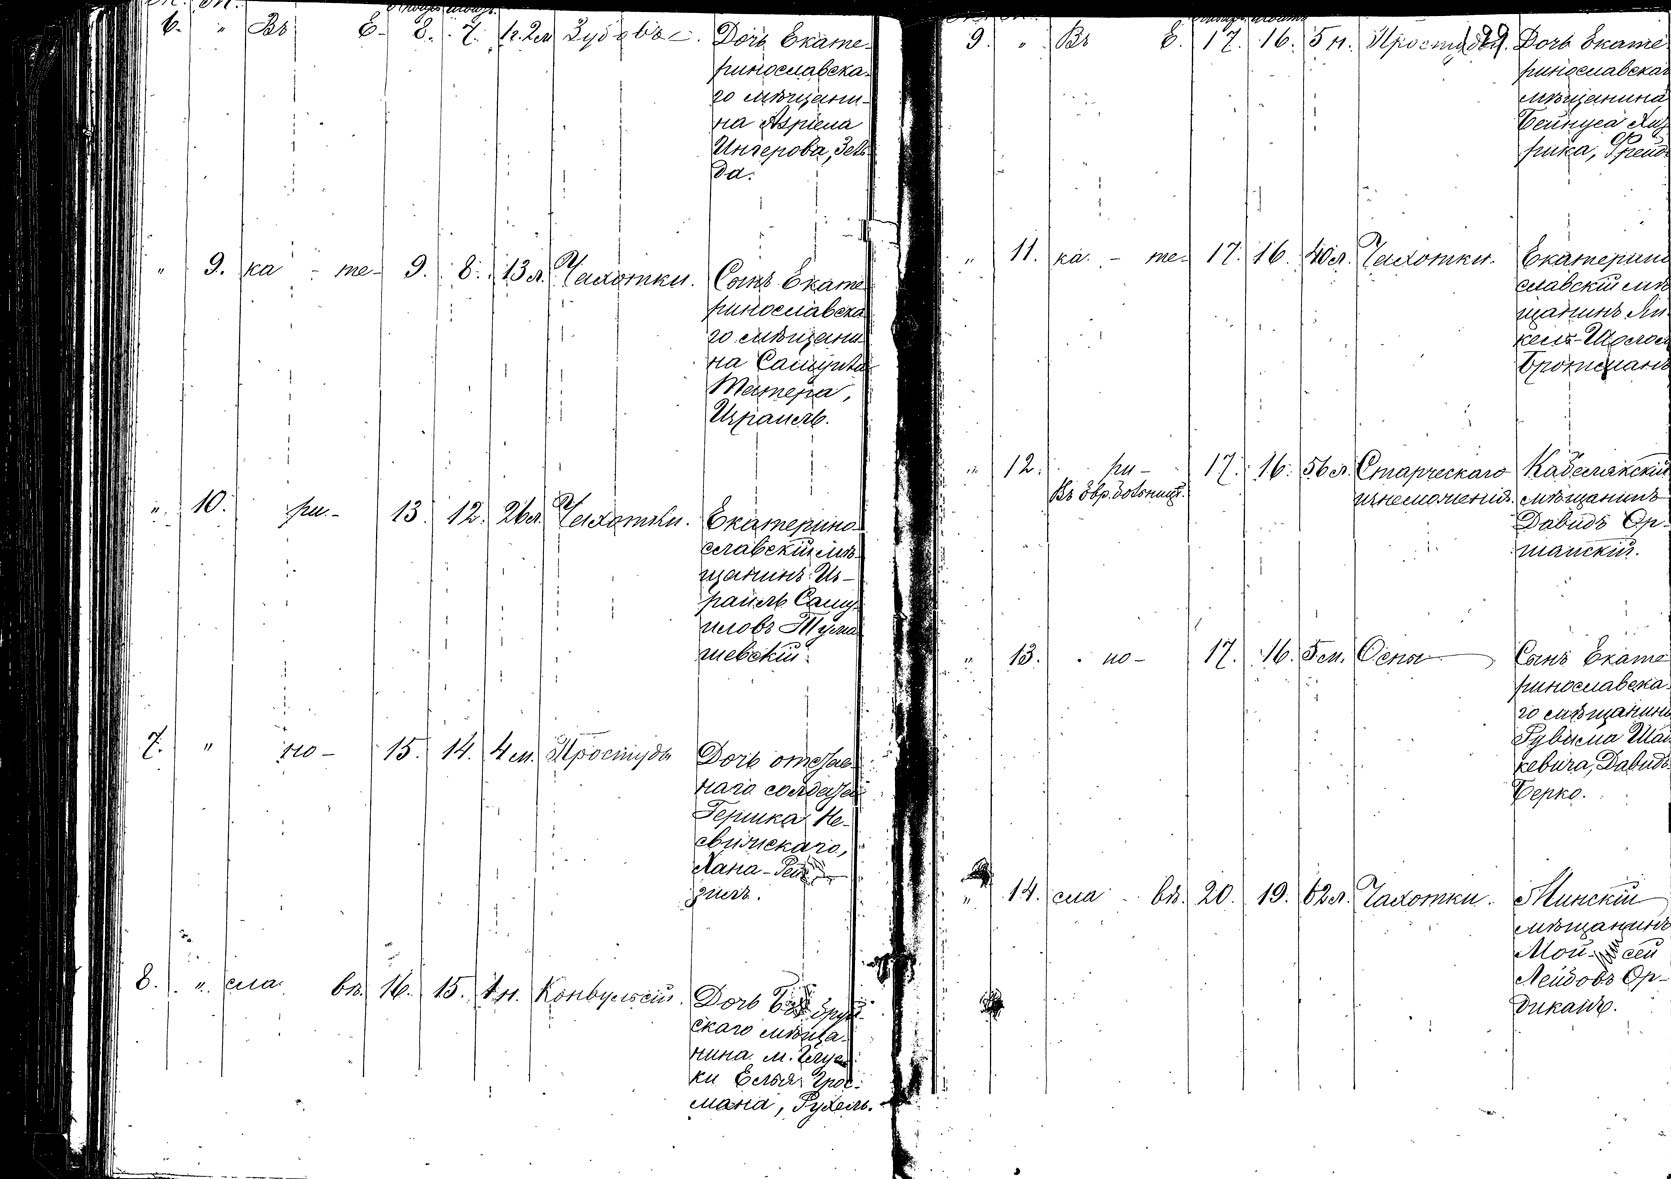 6. " Въ Е- 8. 7. 1г.2м Зубовъ. Дочь Екате-
ринославска-
го мѣщани-
на Азріела
Ингерова, Зель-
да.
" 9. ка - те- 9. 8. 13л. Чахотки. Сынъ Екате
ринославска
го мѣщани-
на Самуила
Метера,
Израиль.
" 10. ри- 13. 12. 26л. Чахотки. Екатерино
славскій мѣ-
щанинъ Из-
раиль Саму-
иловъ Тума
шевскій.
7. " но- 15. 14. 4м. Простуды Дочь отстав-
наго солдата
Гершка Не-
свижскаго,
Хана-Рей
зиль.
8. " сла въ. 16. 15. 1н. Конвульсіи. Дочь Бобруй-
скаго мѣща-
нина м. Глус-
ки Ельи Грос-
мана, Рухель.
199
9. " Въ Е. 17. 16. 5н. Простуды. Дочь Екате
ринославскаго
мѣщанина
Бейнуса
рика, Фрейд
" 11. ка - те- 17. 16. 40л. Чахотки. Екатерино
славскій мѣ
щанинъ
кель-Шолом
Брокманъ
" 12. ри- 17. 16. 56л. Старческаго Кабелякскій
Въ Евр. больниц. изнеможенія. мѣщанинъ
Давидъ Ор-
шанскій.
" 13. но- 17. 16. 5м. Оспы Сынъ Екате
ринославска-
го мѣщанина
Рувима Шай
кевича, Давидъ-
Берко.
" 14. сла - въ. 20. 19. 62л. Чахотки. Минскій
мѣщанинъ
Мой-сей
Лейбовъ Ор-
диканъ.